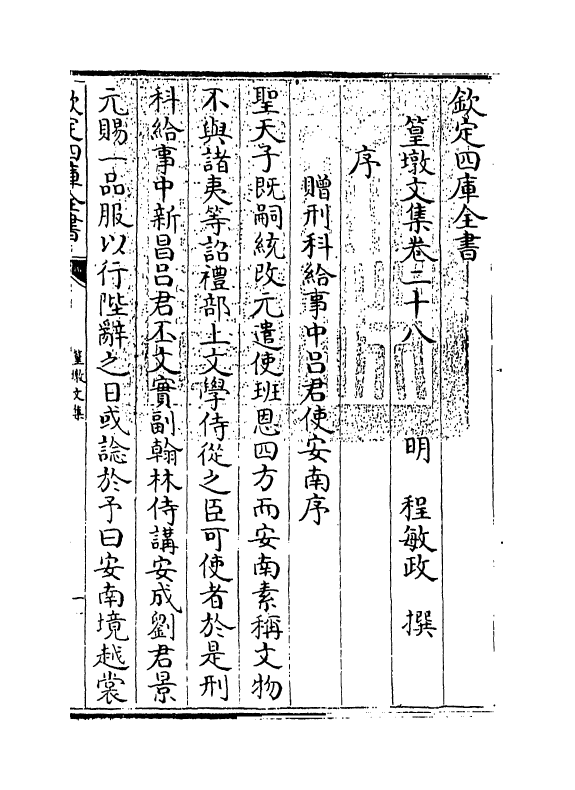 欽定四庫全書
篁墩文集卷二十八
明 程敏政 撰
序
贈刑科給事中呂君使安南序
聖天子既嗣統改元遣使班恩四方而安南素稱文物
不與諸夷等詔禮部上文學侍從之臣可使者於是刑
科給事中新昌呂君丕文實副翰林侍講安成劉君景
元賜一品服以行陛辭之日或諗於予曰安南境越裳
欽定四庫全書
篁墩文集
一